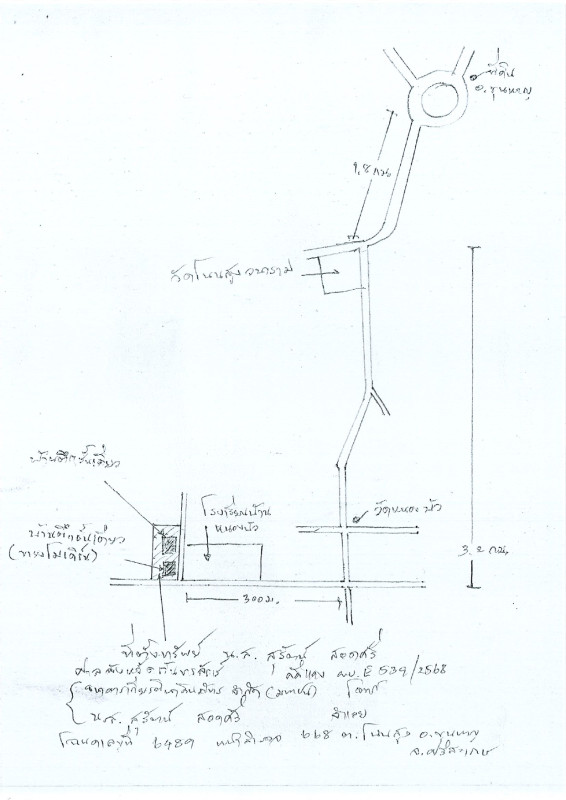 ที่ดิน
อ.ขุนหาญ
1.8 กม
วัดโนนสูงวนาราม
บ้านตึกชั้นเดียว
โรงเรียนบ้าน
หนองบัว
บ้านตึกชั้นเดียว
(ทรงโมเดิร์น)
วัดหนองบัว
3.2 กม.
300 ม.
ที่ตั้งทรัพย์ น.ส. สุรัตน์
ศาลจังหวัดกันทรลักษ์ คดีแดง ผบ.E 539/2568
ธนาคารเกียรตินาคินภัทร จำกัด (มหาชน) โจทก์
น.ส. สุรัตน์ จำเลย
โฉนดเลขที่ 6489 หน้าสำรวจ 668 ต.โนนสูง อ.ขุนหาญ
จ.ศรีสะเกษ